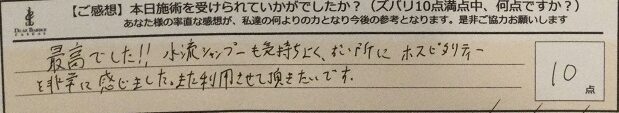 【ご感想】本日施術を受けられていかがでしたか？（ズバリ10点満点中、何点ですか？）
あなた様の率直な感想が、私達の何よりの力となり今後の参考となります。是非ご協力お願いします
DEAR BARBER
最高でした!! 水流シャンプーも気持ちよく、ホスピタリティー
を非常に感じました。また利用させて頂きたいです。
10点